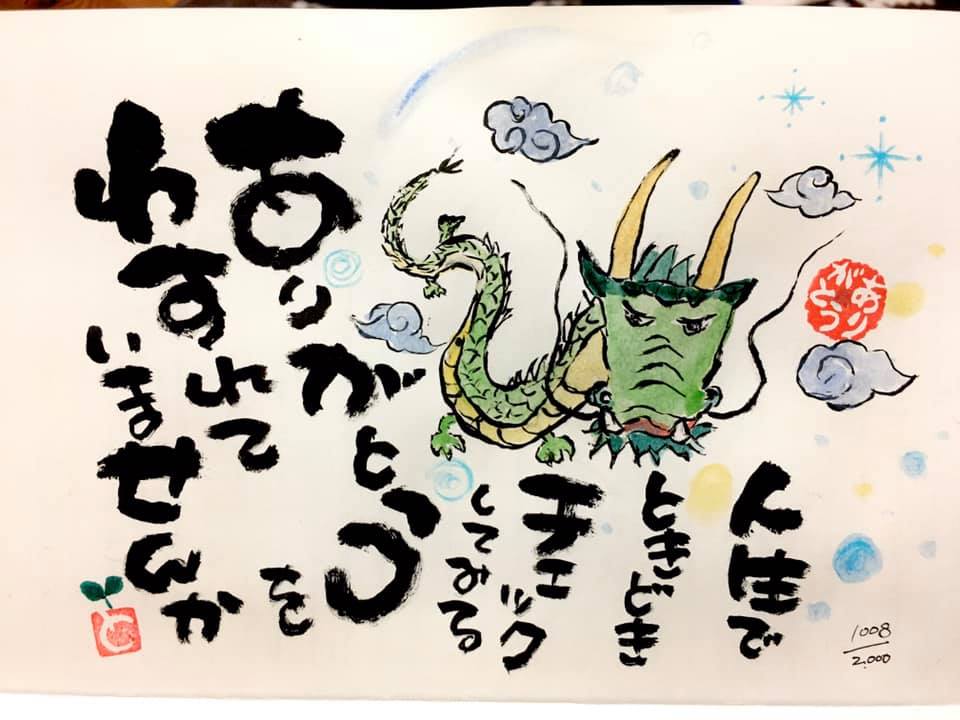 人生で
ときどき
チェック
してみる
ありがとうを
わすれて
いませんか
ありがとう
と
1008
2,000